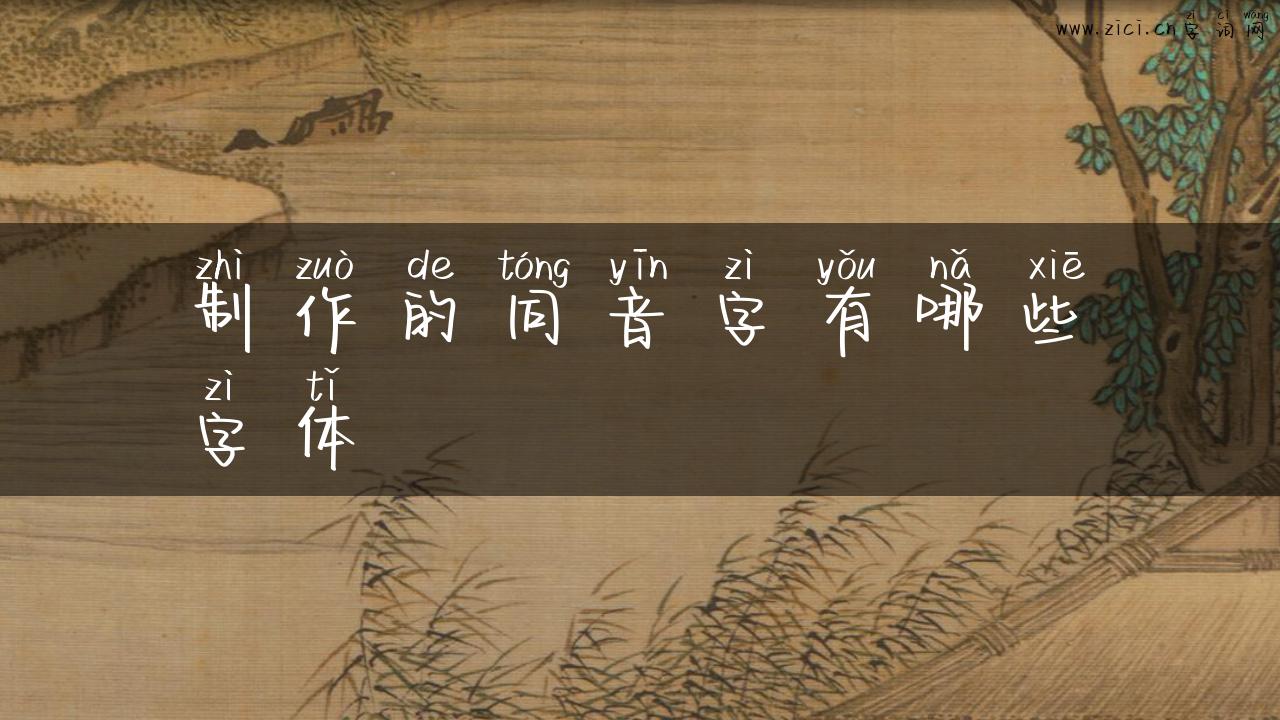 zì cí wǎng
www.zici.cn字词网
zhì zuò de tóng yīn zì yǒu nǎ xiē
制作的同音字有哪些
zì tǐ
字体